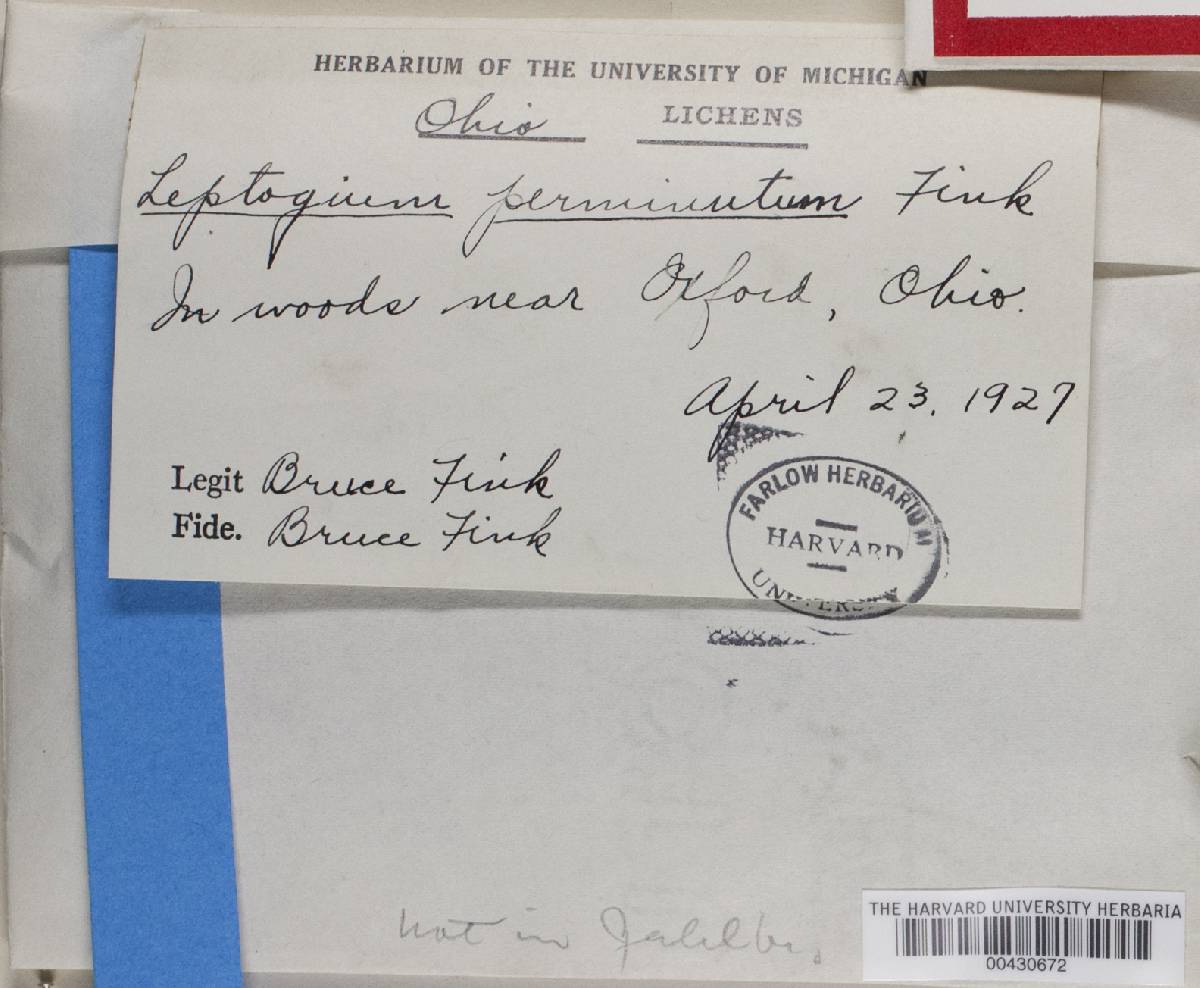 HERBARIUM OF THE UNIVERSITY OF MICHIGAN
Ohio LICHENS
Leptogium perminutum Fink
In woods near Oxford, Ohio.
April 23, 1927
Legit Bruce Fink
Fide. Bruce Fink
FARLOW HERBARIUM
HARVARD
UNIVERSITY
not in
THE HARVARD UNIVERSITY HERBARIA
00430672